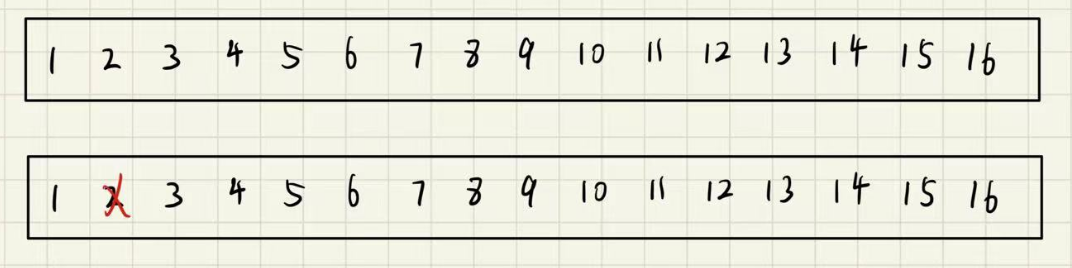 1 2 3 4 5 6 7 8 9 10 11 12 13 14 15 16
1 2 3 4 5 6 7 8 9 10 11 12 13 14 15 16